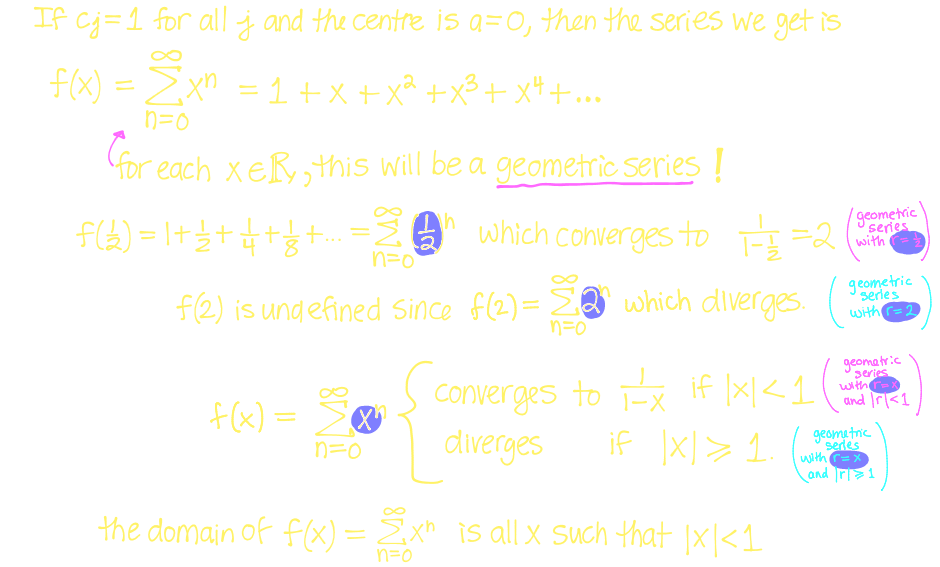 If cj=1 for all j and the centre is a=0, then the series we get is
f(x) = ∞∑n=0 xⁿ = 1 + x + x² + x³ + x⁴ + ...
for each x ∈ ℝ, this will be a geometric series !
f(1/2) = 1 + 1/2 + 1/4 + 1/8 + ... = ∞∑n=0 (1/2)ⁿ which converges to 1/(1-1/2) = 2 (geometric series with r = 1/2)
f(2) is undefined since f(2) = ∞∑n=0 2ⁿ which diverges. (geometric series with r = 2)
f(x) = ∞∑n=0 xⁿ { converges to 1/(1-x) if |x| < 1 (geometric series with r = x and |r| < 1)
diverges if |x| ⩾ 1. (geometric series with r = x and |r| ⩾ 1)
the domain of f(x) = ∞∑n=0 xⁿ is all x such that |x| < 1